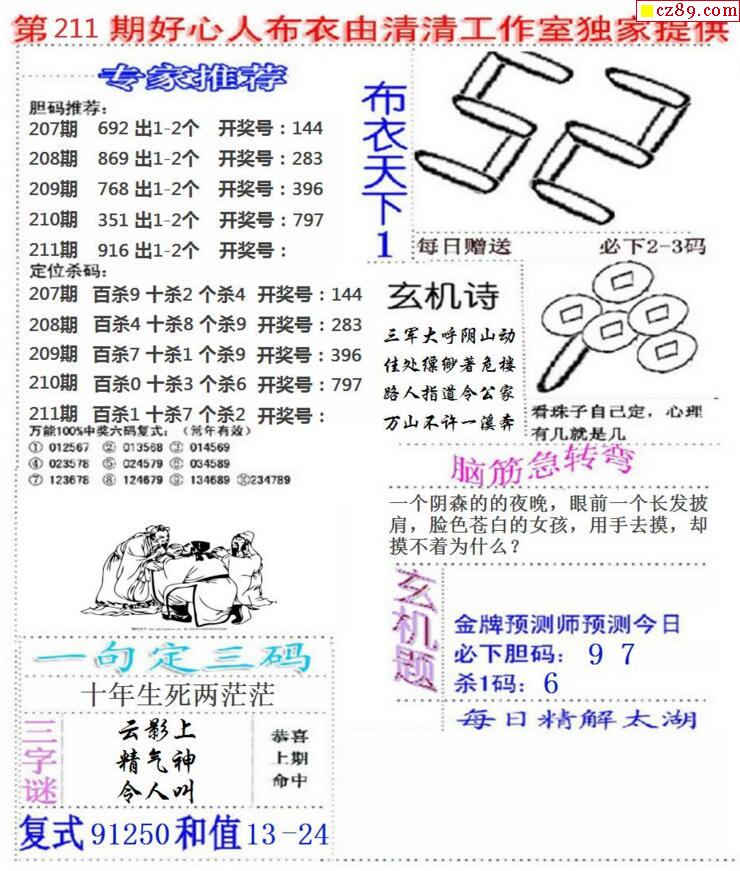 cz89.com
第 211 期好心人布衣由清清工作室独家提供
专家推荐
胆码推荐：
207期 692 出1-2个 开奖号：144
208期 869 出1-2个 开奖号：283
209期 768 出1-2个 开奖号：396
210期 351 出1-2个 开奖号：797
211期 916 出1-2个 开奖号：
定位杀码：
207期 百杀9 十杀2 个杀4 开奖号：144
208期 百杀4 十杀8 个杀9 开奖号：283
209期 百杀7 十杀1 个杀9 开奖号：396
210期 百杀0 十杀3 个杀6 开奖号：797
211期 百杀1 十杀7 个杀2 开奖号：
万能100%中奖六码复式：（常年有效）
① 012567 ② 013568 ③ 014569
④ 023578 ⑤ 024579 ⑥ 034589
⑦ 123678 ⑧ 124679 ⑨ 134689 ⑩234789
布衣天下1
52
每日赠送 必下2-3码
玄机诗
三军大呼阴山动
佳处缥缈著危楼
路人指道令公家
万山不许一溪奔
看珠子自己定，心理
有几就是几
脑筋急转弯
一个阴森的的夜晚，眼前一个长发披
肩，脸色苍白的女孩，用手去摸，却
摸不着为什么？
玄机题
金牌预测师预测今日
必下胆码： 9 7
杀1码： 6
每日精解太湖
一句定三码
十年生死两茫茫
三字谜
云影上
精气神
令人叫
恭喜
上期
命中
复式 91250 和值 13-24